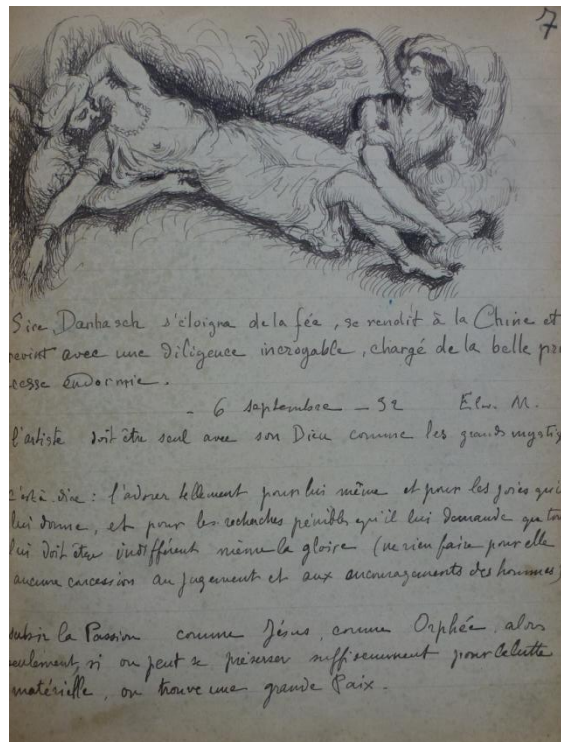 7
Sire, Danhasch s'éloigna de la fée, se rendit à la Chine et
revint avec une diligence incroyable, chargé de la belle prin
cesse endormie.
- 6 septembre - 32 M.
l'artiste doit être seul avec son Dieu comme les grands mystiq
c'est à dire : l'adorer tellement pour lui même et pour les joies qu'i
lui donne, et pour les recherches pénibles qu'il lui demande que tou
lui doit être indifférent même la gloire (ne rien faire pour elle
aucune concession au jugement et aux encouragements des hommes)
subir la Passion comme Jésus, comme Orphée, alors
seulement, si on peut se préserver suffisamment pour lutte
matérielle, on trouve une grande Paix.